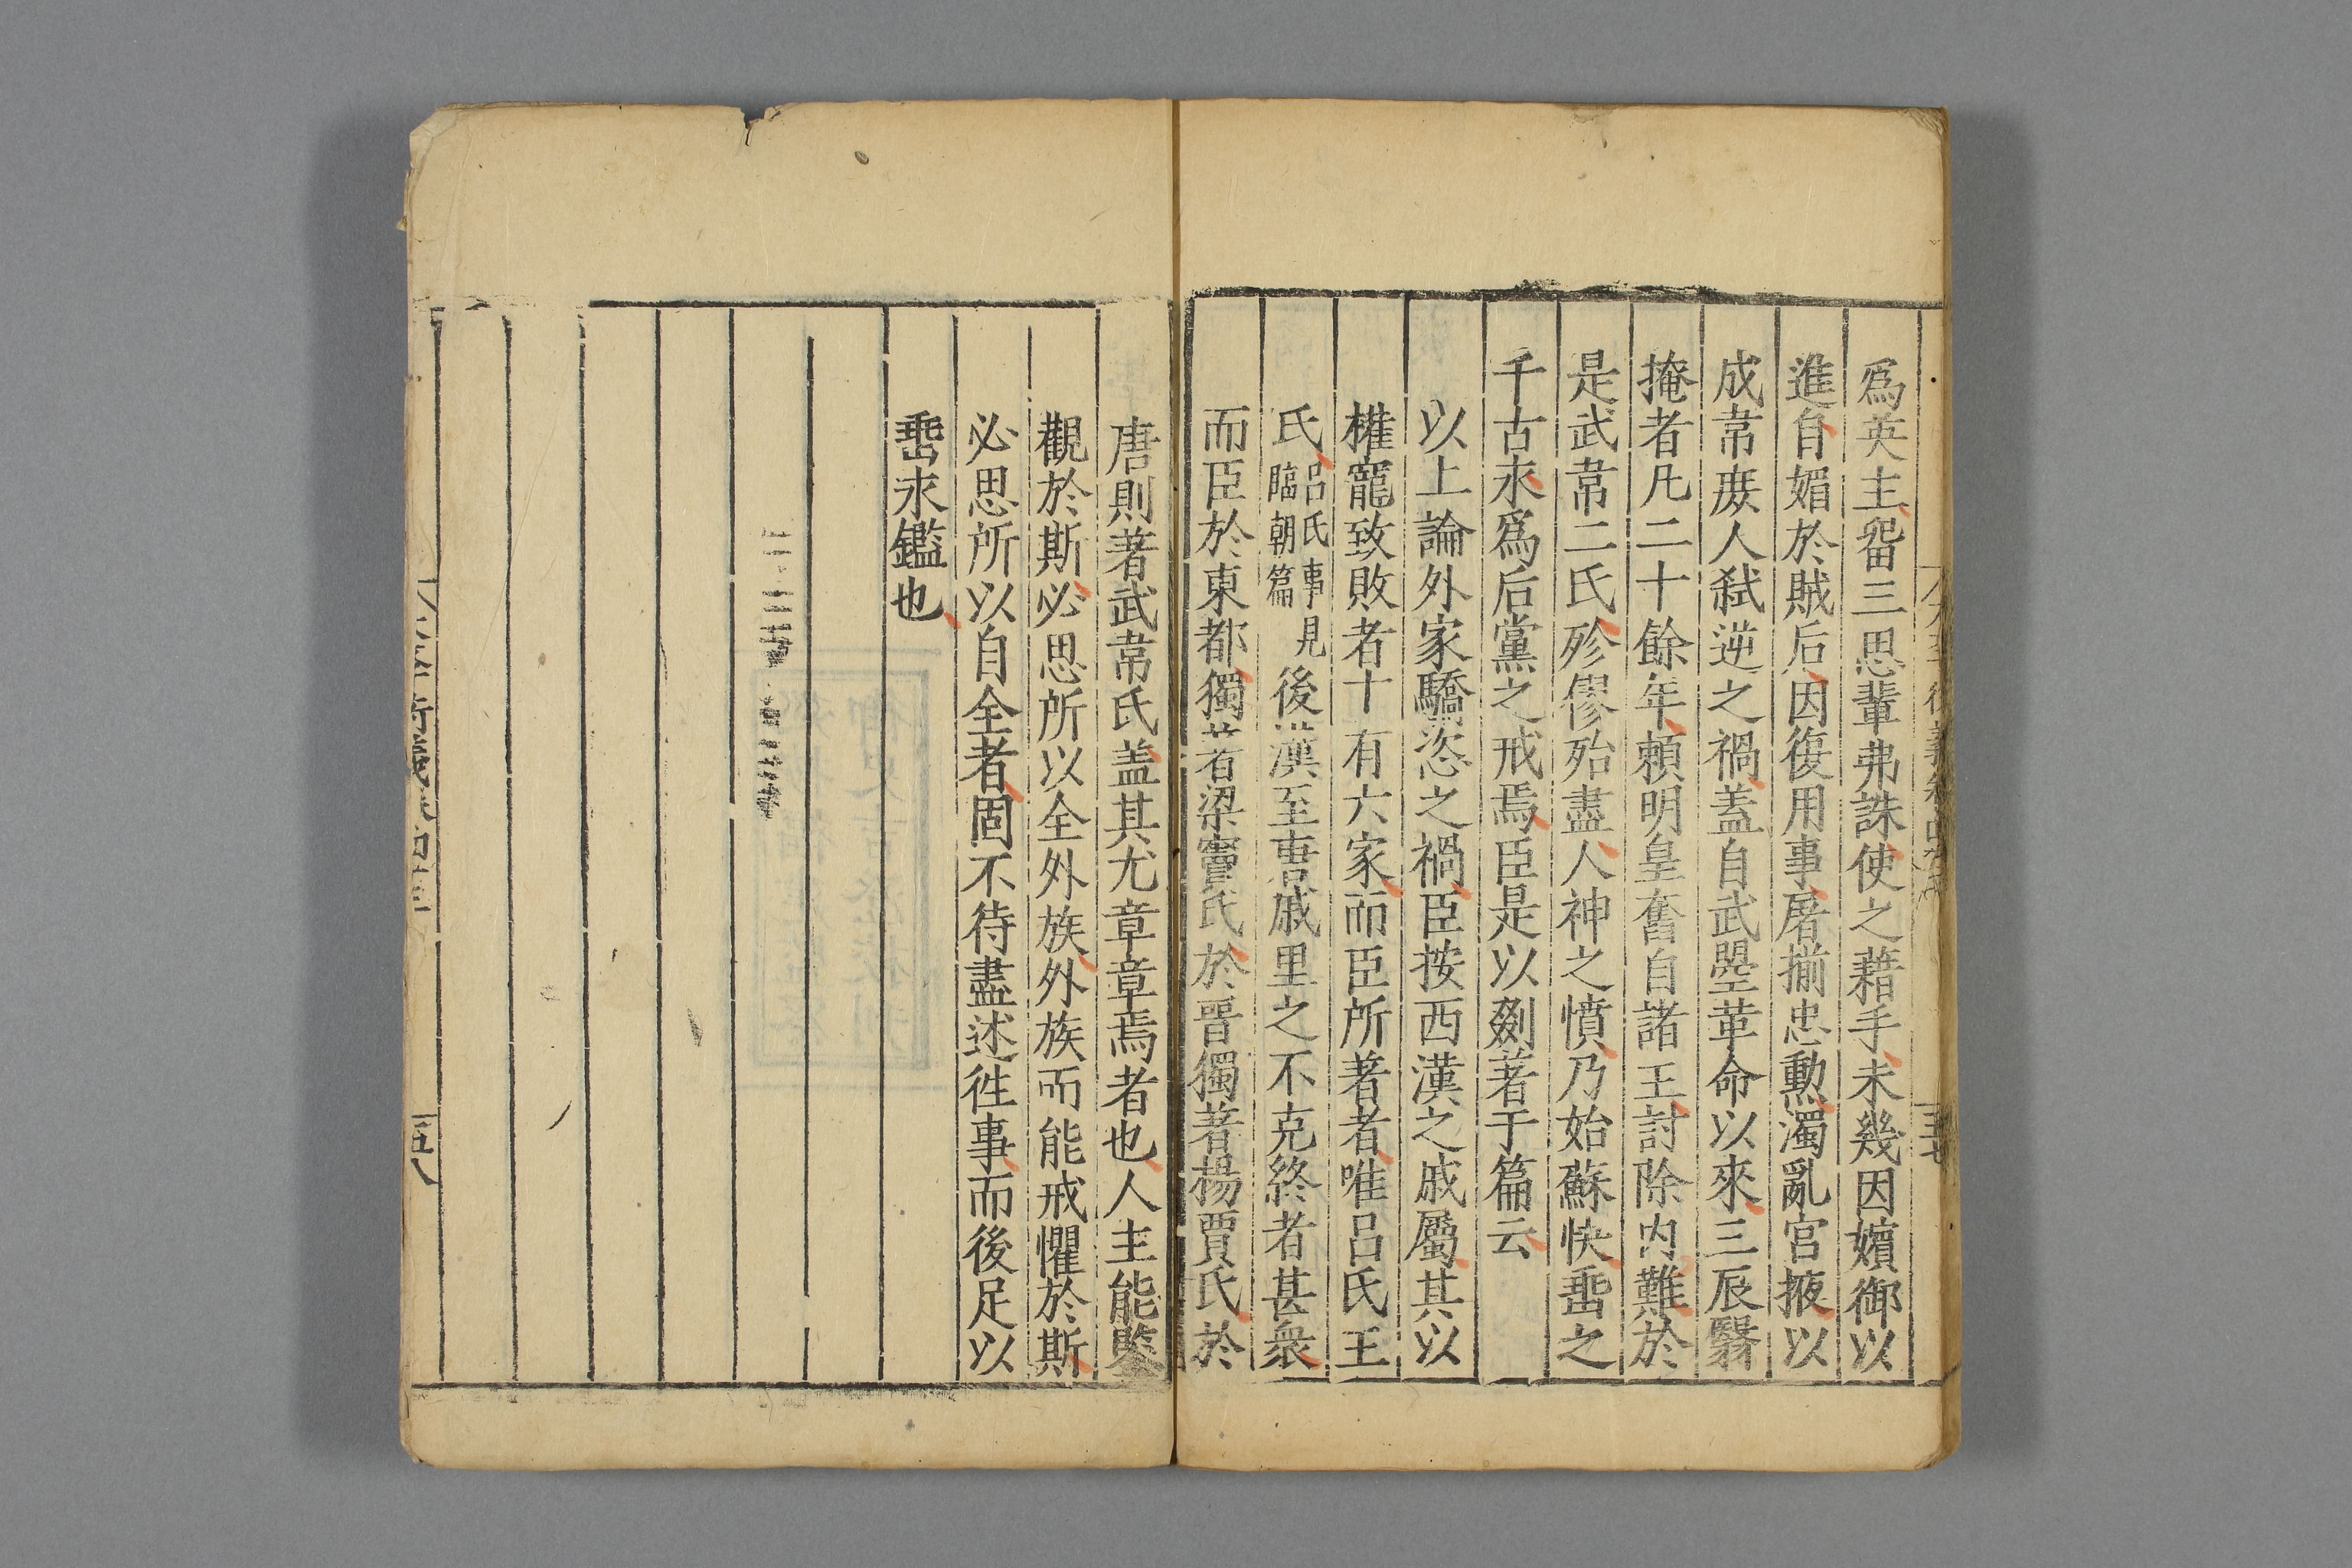 爲英主㽞三思輩弗誅使之藉手未幾因嬪御以
進自媚於賊后因復用事屠揃忠勳濁亂宮掖以
成韋庻人弑逆之禍蓋自武曌革命以來三辰翳
掩者凡二十餘年頼明皇奮自諸王討除內難於
是武韋二氏殄僇殆盡人神之憤乃始蘇快埀之
千古永爲后黨之戒焉臣是以剟著于篇云
以上論外家驕恣之禍臣按西漢之戚屬其以
權寵致敗者十有六家而臣所著者唯呂氏王
氏呂氏事見臨朝篇後漢至唐戚里之不克終者甚衆
而臣於東都獨著梁竇氏於晉獨著楊賈氏於
唐則著武韋氏盖其尤章章焉者也人主能鑒
觀於斯必思所以全外族外族而能戒懼於斯
必思所以自全者固不待盡述徃事而後足以
埀永鑑也
五十七
五八